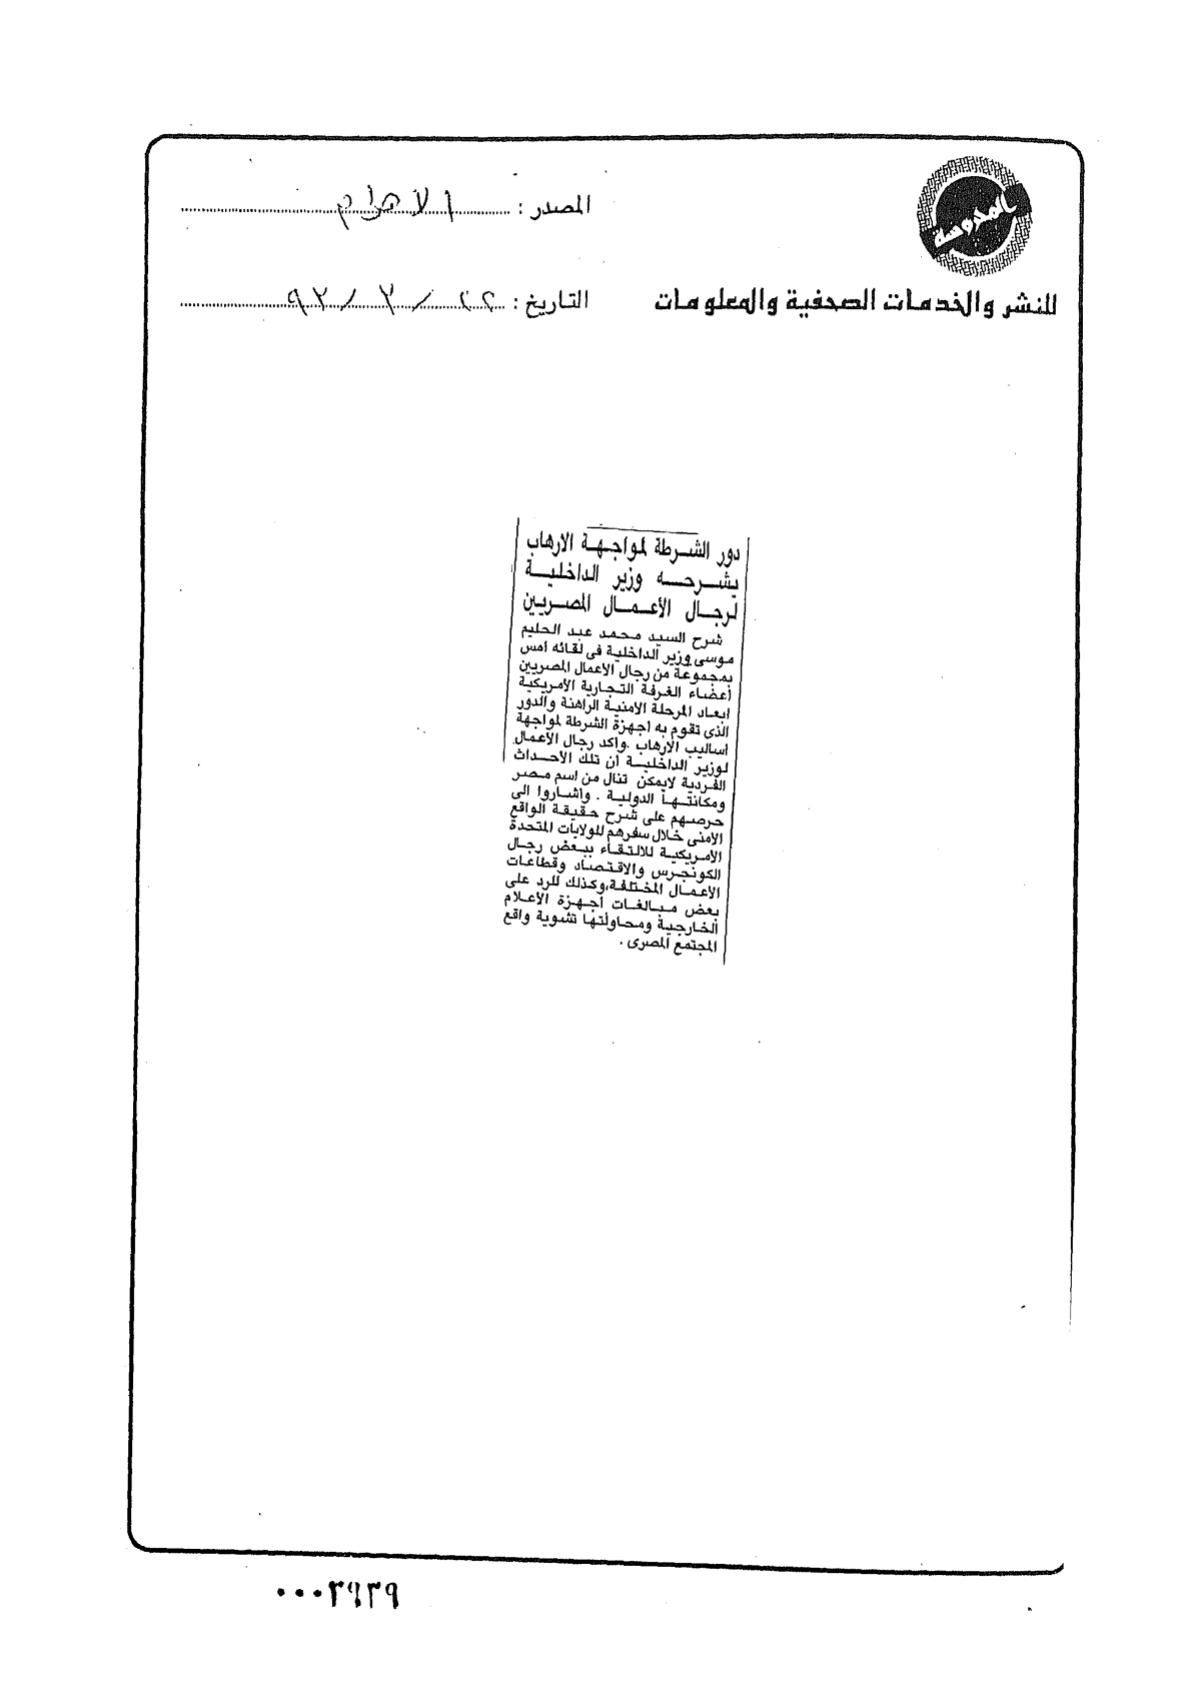 بالمحروسة
المصدر : الاهرام
للنشر والخدمات الصحفية والمعلومات
التاريخ : ٢٢ / ٣ / ٩٣
دور الشرطة لمواجهة الارهاب
يشرحه وزير الداخلية
لرجال الأعمال المصريين
شرح السيد محمد عبد الحليم
موسى وزير الداخلية فى لقائه امس
بمجموعة من رجال الاعمال المصريين
أعضاء الغرفة التجارية الأمريكية
ابعاد المرحلة الامنية الراهنة والدور
الذى تقوم به اجهزة الشرطة لمواجهة
اساليب الارهاب .واكد رجال الأعمال
لوزير الداخلية ان تلك الأحداث
الفردية لايمكن تنال من اسم مصر
ومكانتها الدولية . واشاروا الى
حرصهم على شرح حقيقة الواقع
الامنى خلال سفرهم للولايات المتحدة
الأمريكية للالتقاء ببعض رجال
الكونجرس والاقتصاد وقطاعات
الأعمال المختلفة،وكذلك للرد على
بعض مبالغات أجهزة الاعلام
الخارجية ومحاولتها تشوية واقع
المجتمع المصرى .